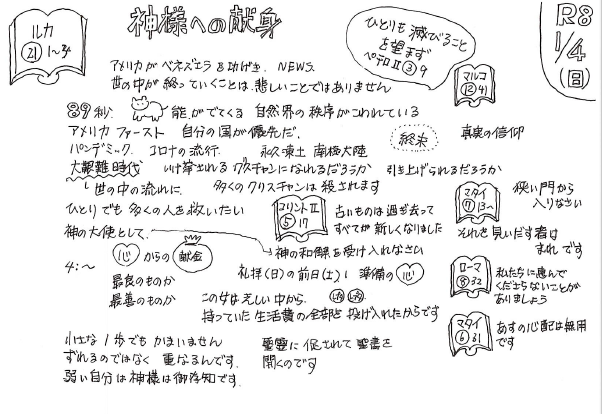 神様への献身
R8
1/4
(日)
ルカ
㉑ 1~34
ひとりも滅びること
を望まず
ペテロⅡ③9
アメリカが ベネズエラ 8功げき. NEWS.
世の中が終っていくことは悲しいことではありません
マルコ
⑫41
89秒. 熊がでてくる 自然界の秩序がこわれている
アメリカ ファースト 自分の国が優先だ.
終末
真実の信仰
パンデミック. コロナの流行. 永久凍土 南極大陸
大艱難時代 クリスチャンになれるだろうか 引き上げられるだろうか
世の中の流れに. 多くのクリスチャンは殺されます
マタイ
⑦13~
狭い門から
入りなさい
ひとりでも 多くの人を救いたい
コリントⅡ
⑤17
古いものは過ぎ去って
すべてが新しくなりました
それを見いだす者は
まれです
神の大使として、
神の和解を受け入れなさい
心 からの 献金
4:~
礼拝(日)の前日(土) 準備の 心
ローマ
⑧32
私たちに恵んで
くださらないことが
ありましょう
最良のものか
最善のものか
この女は乏しい中から
持っていた生活費の全部を投げ入れたからです
マタイ
⑥31
あすの心配は無用
です
小さな1歩でもかまいません
ずれるのではなく 重なるんです.
弱い自分は神様は御存知です.
聖霊に促されて聖書を
開くのです